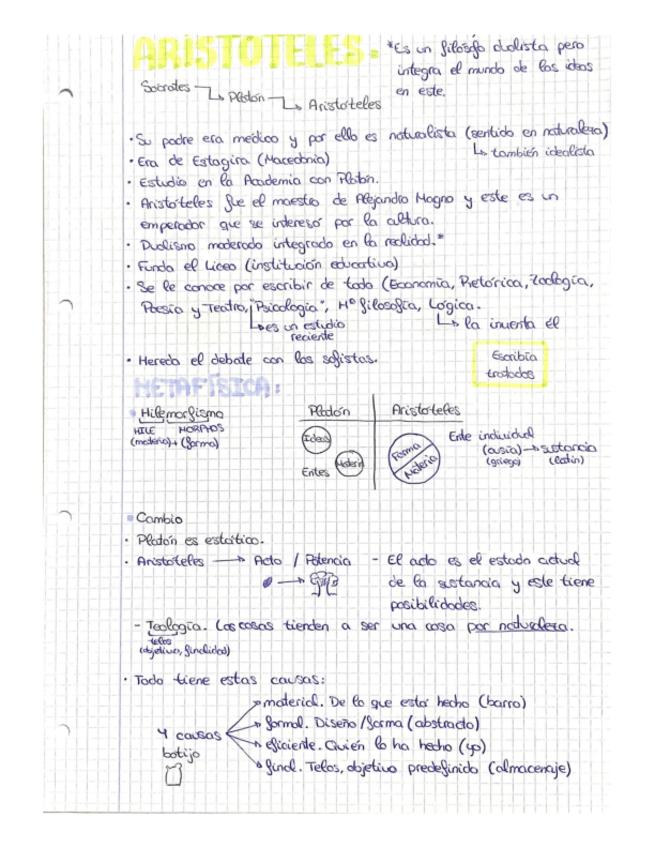 ARISTOTELES.
*Es un filósofo dualista pero
integra el mundo de las ideas
en este.
Socrates → Platón → Aristóteles
· Su padre era médico y por ello es naturalista (sentido en naturaleza)
↳ también idealista
· Era de Estagira (Macedonia)
· Estudio en la Academia con Platón.
· Aristóteles fue el maestro de Alejandro Magno y este es un
emperador que se interesó por la cultura.
· Dualismo moderado integrado en la realidad.*
· Funda el Liceo (institución educativa)
· Se le conoce por escribir de todo (Economía, Retórica, Zoología,
Poesía y Teatro, "Psicología", Hª filosofía, Lógica.
↳ es un estudio
reciente
↳ la inventa él
· Hereda el debate con los sofistas.
Escribía
tratados
METAFÍSICA:
· Hilemorfismo
HILE MORPHOS
(materia) + (forma)
Platón Aristóteles
Ideas
Entes Materia
Forma
Materia
Ente individual
(ousía) → sustancia
(griego) (latín)
· Cambio
· Platón es estático.
· Aristóteles → Acto / Potencia - El acto es el estado actual
de la sustancia y este tiene
posibilidades.
- Teología. Las cosas tienden a ser una cosa por naturaleza.
telos
(objetivo, finalidad)
· Todo tiene estas causas:
4 causas
botijo
material. De lo que estar hecho (barro)
formal. Diseño/forma (abstracto)
eficiente. Quién lo ha hecho (yo)
final. Telos, objetivo predefinido (almacenaje)